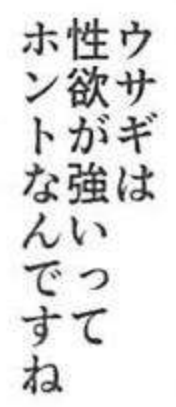 ウサギは
性欲が強いって
ホントなんですね